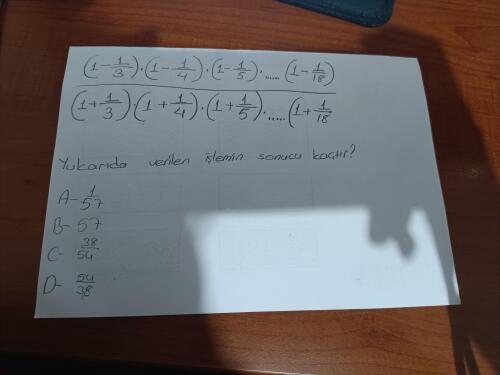 (1-1/3).(1-1/4).(1-1/5)......(1-1/18)
(1+1/3).(1+1/4).(1+1/5)......(1+1/18
Yukarıda verilen işlemin sonucu kaçtır?
A- 1/57
B- 57
C- 38/54
D- 54/38